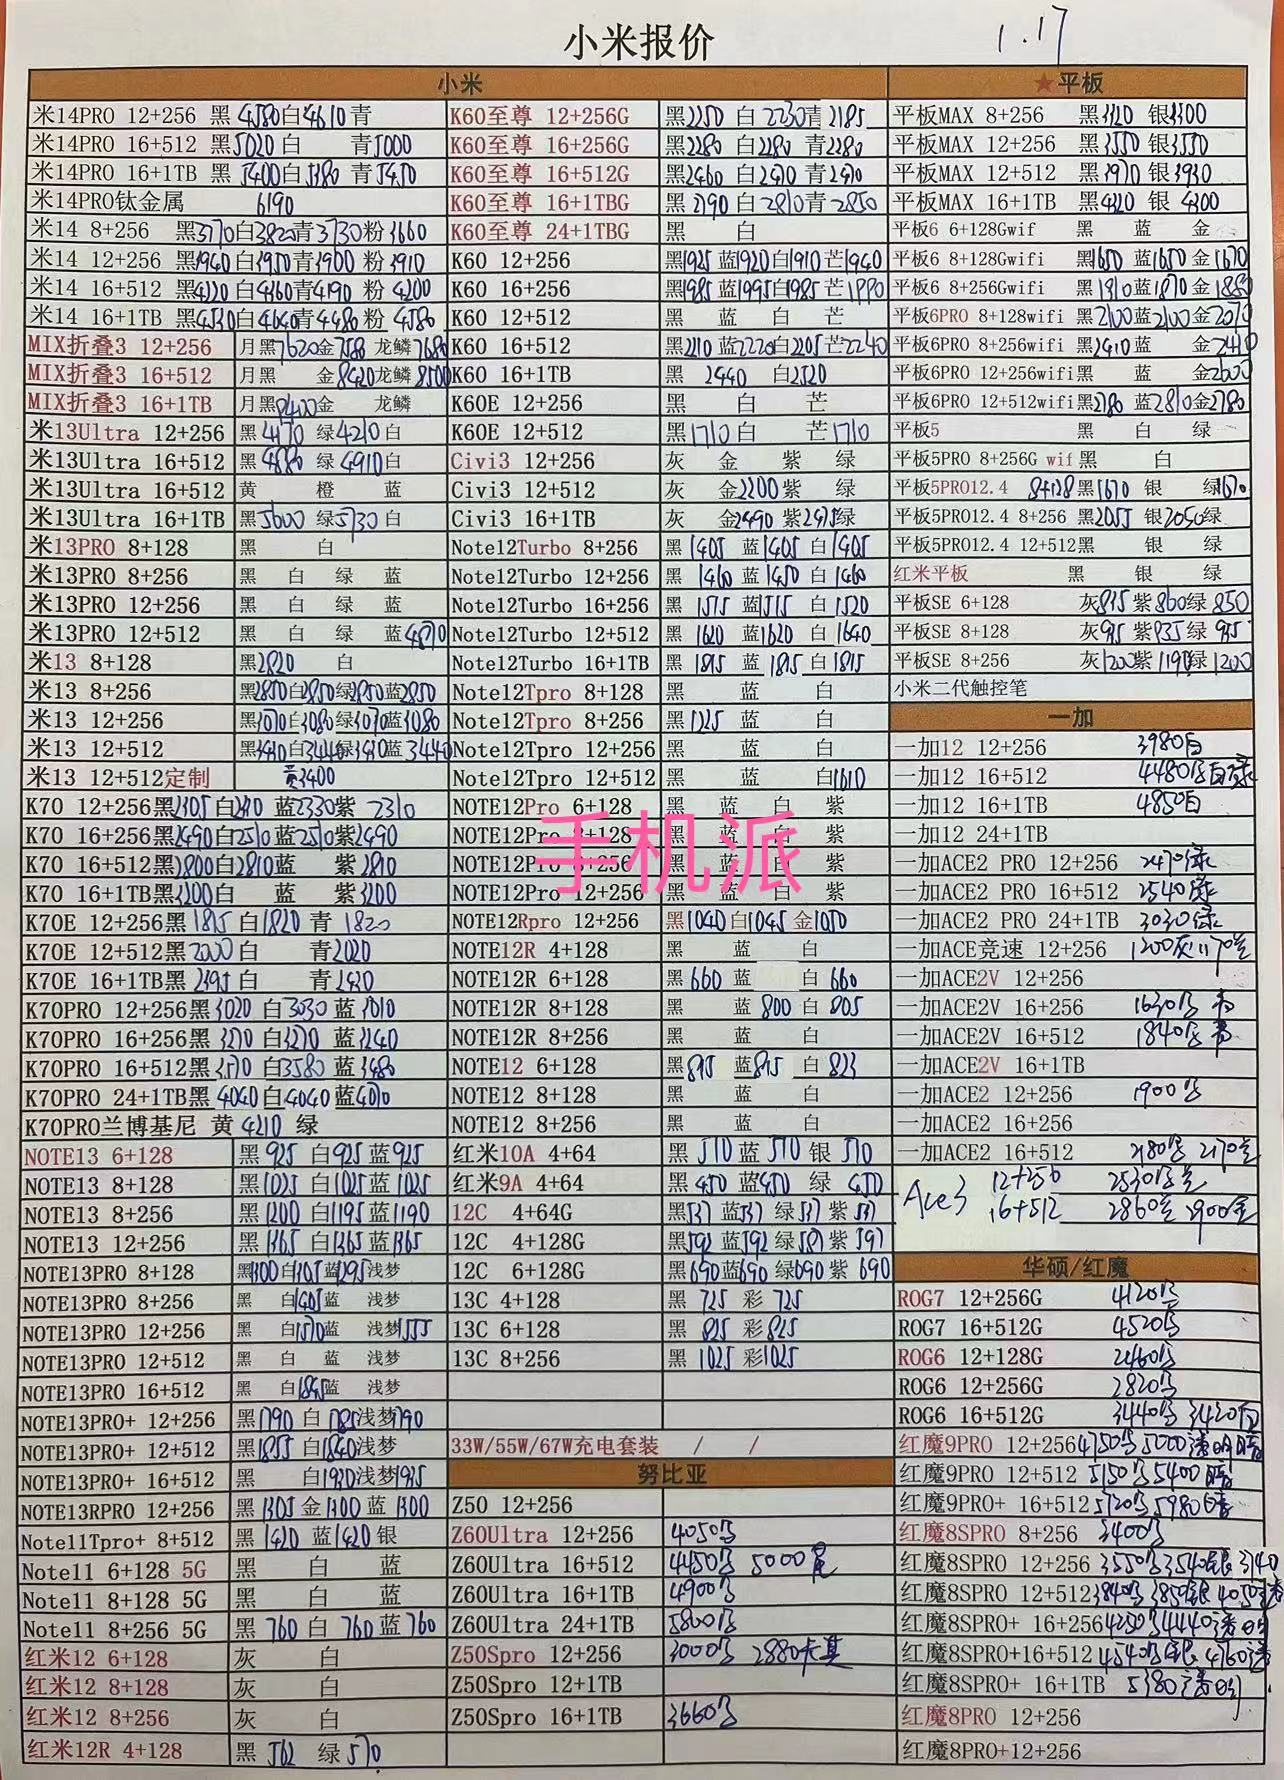 小米报价
1.17
小米
米14PRO 12+256 黑4580白4610青
米14PRO 16+512 黑5020白 青5000
米14PRO 16+1TB 黑5400白5380青5450
米14PRO钛金属 6190
米14 8+256 黑3770白3820青3730粉3660
米14 12+256 黑3940白3950青3900粉3910
米14 16+512 黑4220白4260青4190粉4200
米14 16+1TB 黑4530白4640青4480粉4580
MIX折叠3 12+256 月黑7620金7580龙鳞7680
MIX折叠3 16+512 月黑 金8420龙鳞8500
MIX折叠3 16+1TB 月黑9400金 龙鳞
米13Ultra 12+256 黑4170绿4210白
米13Ultra 16+512 黑4880绿4910白
米13Ultra 16+512 黄 橙 蓝
米13Ultra 16+1TB 黑5600绿5730白
米13PRO 8+128 黑 白
米13PRO 8+256 黑 白 绿 蓝
米13PRO 12+256 黑 白 绿 蓝
米13PRO 12+512 黑 白 绿 蓝4870
米13 8+128 黑2820 白
米13 8+256 黑2850白2850绿2850蓝2850
米13 12+256 黑3070白3080绿3070蓝3080
米13 12+512 黑3430白3440绿3430蓝3440
米13 12+512定制 黄3400
K70 12+256黑2305白2310蓝2330紫2310
K70 16+256黑2490白2510蓝2510紫2490
K70 16+512黑2800白2810蓝 紫2810
K70 16+1TB黑3200白 蓝 紫3200
K70E 12+256黑1815白1820青1820
K70E 12+512黑2000白 青2020
K70E 16+1TB黑2395白 青2430
K70PRO 12+256黑3020白3030蓝3010
K70PRO 16+256黑3270白3270蓝3240
K70PRO 16+512黑3570白3580蓝3480
K70PRO 24+1TB黑4040白4040蓝4010
K70PRO兰博基尼 黄4210绿
NOTE13 6+128 黑925白925蓝925
NOTE13 8+128 黑1025白1025蓝1025
NOTE13 8+256 黑1200白1195蓝1190
NOTE13 12+256 黑1365白1365蓝1365
NOTE13PRO 8+128 黑1300白1305蓝1295浅梦
NOTE13PRO 8+256 黑 白1405蓝 浅梦
NOTE13PRO 12+256 黑 白1570蓝 浅梦1555
NOTE13PRO 12+512 黑 白 蓝 浅梦
NOTE13PRO 16+512 黑 白1845蓝 浅梦
NOTE13PRO+ 12+256 黑1790白1785浅梦1790
NOTE13PRO+ 12+512 黑1855白1840浅梦
NOTE13PRO+ 16+512 黑 白1930浅梦1935
NOTE13RPRO 12+256 黑1305金1300蓝1300
Note11Tpro+ 8+512 黑1420蓝1420银
Note11 6+128 5G 黑 白 蓝
Note11 8+128 5G
Note11 8+256 5G 黑760白760蓝760
红米12 6+128 灰 白
红米12 8+128 灰 白
红米12 8+256 灰 白
红米12R 4+128 黑562绿570
K60至尊 12+256G 黑2250白2230青2185
K60至尊 16+256G 黑2280白2280青2280
K60至尊 16+512G 黑2460白2410青2410
K60至尊 16+1TBG 黑2790白2810青2850
K60至尊 24+1TBG 黑 白
K60 12+256 黑1925蓝1920白1910芒1940
K60 16+256 黑1985蓝1995白1985芒1990
K60 12+512 黑 蓝 白 芒
K60 16+512 黑2210蓝2220白2205芒2240
K60 16+1TB 黑2440白2520
K60E 12+256 黑 白 芒
K60E 12+512 黑1710白 芒1710
Civi3 12+256 灰 金 紫 绿
Civi3 12+512 灰 金2200紫 绿
Civi3 16+1TB 灰 金2490紫2475绿
Note12Turbo 8+256 黑1405蓝1405白1405
Note12Turbo 12+256 黑1460蓝1450白1460
Note12Turbo 16+256 黑1515蓝1515白1520
Note12Turbo 12+512 黑1620蓝1620白1640
Note12Turbo 16+1TB 黑1815蓝1815白1815
Note12Tpro 8+128 黑 蓝 白
Note12Tpro 8+256 黑1225蓝 白
Note12Tpro 12+256 黑 蓝 白
Note12Tpro 12+512 黑 蓝 白1610
NOTE12Pro 6+128 黑 蓝 白 紫
NOTE12Pro 8+128 黑 白 紫
NOTE12Pro 黑 蓝白 紫
NOTE12Pro 12+256 黑 蓝 白 紫
手机派
NOTE12Rpro 12+256 黑1040白1045金1050
NOTE12R 4+128 黑 蓝 白
NOTE12R 6+128 黑660蓝 白660
NOTE12R 8+128 黑 蓝800白805
NOTE12R 8+256 黑 蓝 白
NOTE12 6+128 黑815蓝815白823
NOTE12 8+128 黑 蓝 白
NOTE12 8+256 黑 蓝 白
红米10A 4+64 黑510蓝510银510
红米9A 4+64 黑450蓝450绿450
12C 4+64G 黑537蓝537绿537紫537
12C 4+128G 黑592蓝592绿587紫597
12C 6+128G 黑690蓝690绿690紫690
13C 4+128 黑725彩725
13C 6+128 黑825彩825
13C 8+256 黑1025彩1025
33W/55W/67W充电套装 / /
努比亚
Z50 12+256
Z60Ultra 12+256 4050
Z60Ultra 16+512 4450 5000
Z60Ultra 16+1TB 4900
Z60Ultra 24+1TB 5800
Z50Spro 12+256 3000 2880
Z50Spro 12+1TB
Z50Spro 16+1TB 3660
★平板
平板MAX 8+256 黑3120银3300
平板MAX 12+256 黑3550银3550
平板MAX 12+512 黑3970银3930
平板MAX 16+1TB 黑4320银4300
平板6 6+128Gwif 黑 蓝 金
平板6 8+128Gwifi 黑1650蓝1650金1670
平板6 8+256Gwifi 黑1810蓝1870金1880
平板6PRO 8+128wifi 黑2100蓝2100金2070
平板6PRO 8+256wifi 黑2410蓝 金2410
平板6PRO 12+256wifi黑 蓝 金2600
平板6PRO 12+512wifi黑2780蓝2810金2780
平板5 黑 白 绿
平板5PRO 8+256G wif黑 白
平板5PRO12.4 8+128黑1670银 绿1670
平板5PRO12.4 8+256黑2055银2050绿
平板5PRO12.4 12+512黑 银 绿
红米平板 黑 银 绿
平板SE 6+128 灰815紫860绿850
平板SE 8+128 灰935紫935绿935
平板SE 8+256 灰1200紫1190绿1200
小米二代触控笔
一加
一加12 12+256 3980白
一加12 16+512 4480白绿
一加12 16+1TB 4850白
一加12 24+1TB
一加ACE2 PRO 12+256 2470绿
一加ACE2 PRO 16+512 2540绿
一加ACE2 PRO 24+1TB 3030绿
一加ACE竞速 12+256 1200灰1170
一加ACE2V 12+256
一加ACE2V 16+256 1630
一加ACE2V 16+512 1840
一加ACE2V 16+1TB
一加ACE2 12+256 1900
一加ACE2 16+256
一加ACE2 16+512 2180 2170
Ace3 12+256 2530
16+512 2860 2900金
华硕/红魔
ROG7 12+256G 4120
ROG7 16+512G 4520
ROG6 12+128G 2460
ROG6 12+256G 2820
ROG6 16+512G 3440 3420白
红魔9PRO 12+256 4750 5000透明
红魔9PRO 12+512 5150 5400
红魔9PRO+ 16+512 5720 5980
红魔8SPRO 8+256 3400
红魔8SPRO 12+256 3550 3540银 3740
红魔8SPRO 12+512 3840 3850银 4050
红魔8SPRO+ 16+256 4250 4440透明
红魔8SPRO+16+512 4540 银 4760透
红魔8SPRO+ 16+1TB 5380透明
红魔8PRO 12+256
红魔8PRO+12+256